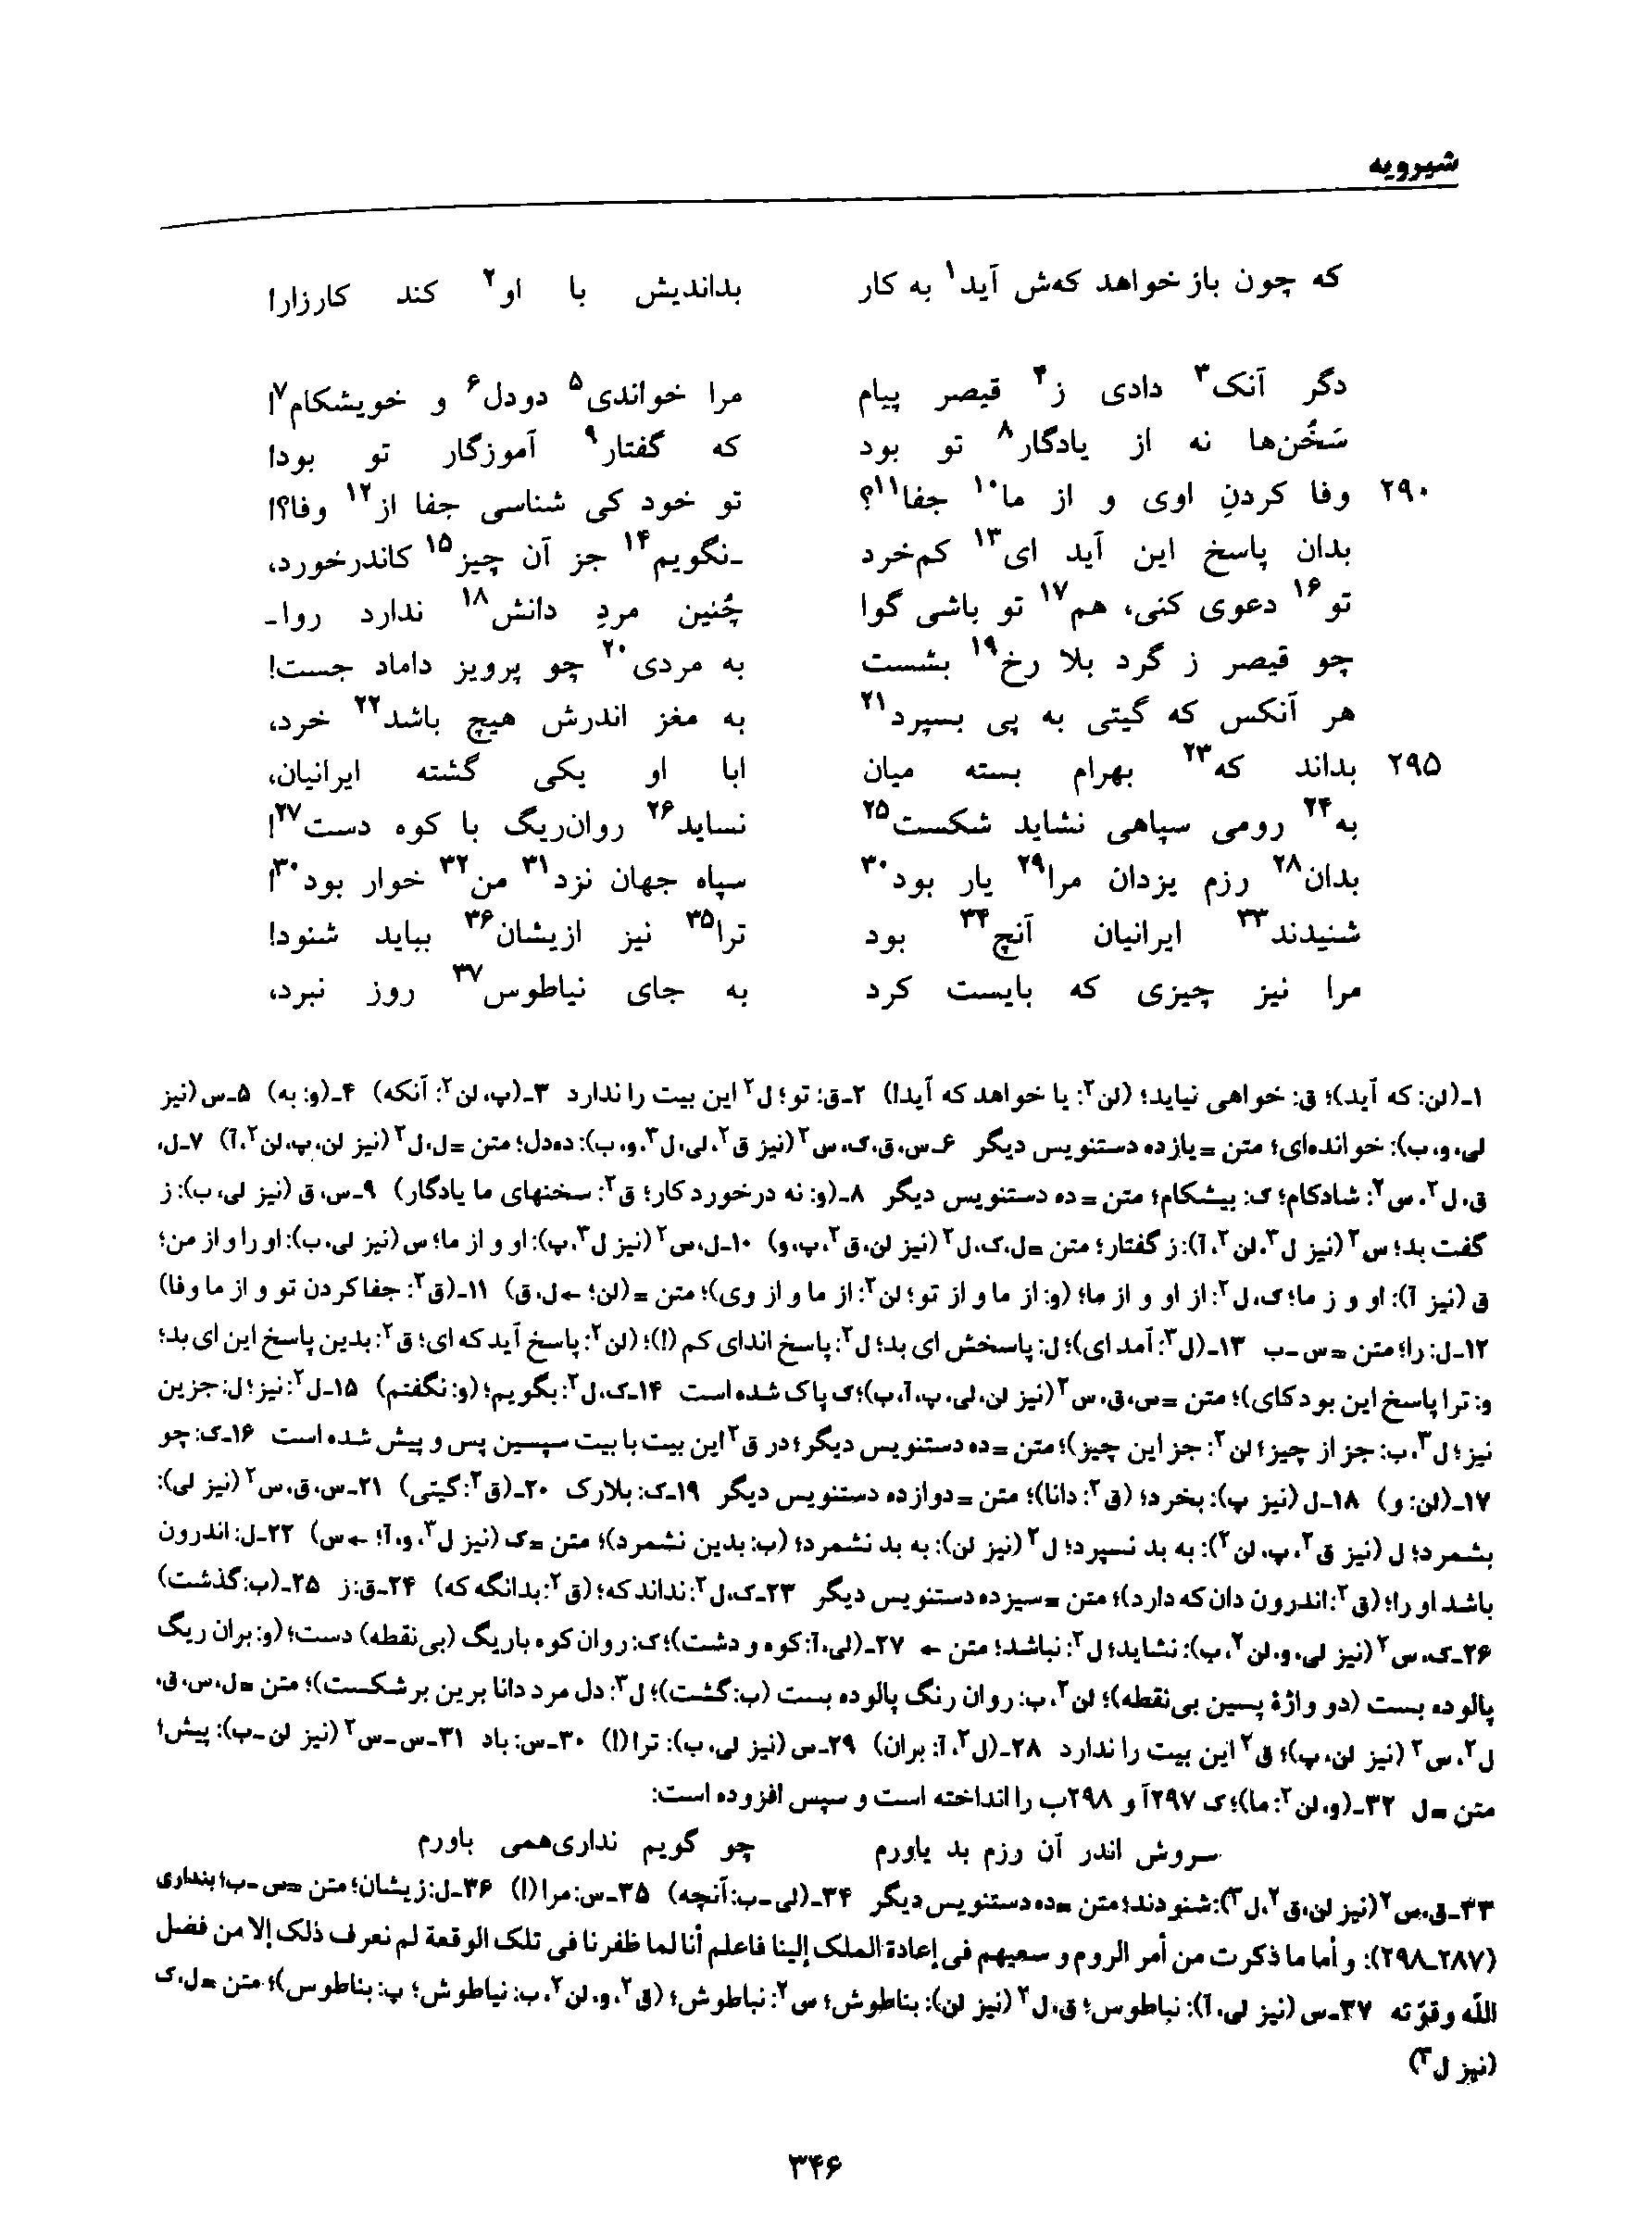 شیرویه
که چون باز خواهد که‌ش آید۱ به کار بداندیش با او۲ کند کارزار!
دگر آنک۳ دادی ز۴ قیصر پیام مرا خواندی۵ دودل۶ و خویشکام۷!
سَخُن‌ها نه از یادگار۸ تو بود که گفتار۹ آموزگار تو بود!
۲۹۰ وفا کردنِ اوی و از ما۱۰ جفا۱۱؟ تو خود کی شناسی جفا از۱۲ وفا؟!
بدان پاسخ این آید ای۱۳ کم‌خرد ـ نگویم۱۴ جز آن چیز۱۵ کاندرخورد،
تو۱۶ دعوی کنی، هم۱۷ تو باشی گوا چُنین مردِ دانش۱۸ ندارد روا ـ
چو قیصر ز گرد بلا رخ۱۹ بشست به مردی۲۰ چو پرویز داماد جست!
هر آنکس که گیتی به پی بسپرد۲۱ به مغز اندرش هیچ باشد۲۲ خرد،
۲۹۵ بداند که۲۳ بهرام بسته میان ابا او یکی گشته ایرانیان،
به۲۴ رومی سپاهی نشاید شکست۲۵ نساید۲۶ روان‌ریگ با کوه دست۲۷!
بدان۲۸ رزم یزدان مرا۲۹ یار بود۳۰ سپاه جهان نزد۳۱ من۳۲ خوار بود۳۰!
شنیدند۳۳ ایرانیان آنچ۳۴ بود ترا۳۵ نیز ازیشان۳۶ بباید شنود!
مرا نیز چیزی که بایست کرد به جای نیاطوس۳۷ روز نبرد،
۱ـ(لن: که آید)؛ ق: خواهی نیاید؛ (لن۲: یا خواهد که آید!) ۲ـق: تو؛ ل۲ این بیت را ندارد ۳ـ(پ، لن۲: آنکه) ۴ـ(و: به) ۵ـس (نیز
لی، و، ب): خوانده‌ای؛ متن = یازده دستنویس دیگر ۶ـس، ق، ک، س۲ (نیز ق۲، لی، ل۳، و، ب): ده‌دل؛ متن = ل، ل۲ (نیز لن، پ، لن۲، آ) ۷ـل،
ق، ل۲، س۲: شادکام؛ ک: بیشکام؛ متن = ده دستنویس دیگر ۸ـ(و: نه درخورد کار؛ ق۲: سخنهای ما یادگار) ۹ـس، ق (نیز لی، ب): ز
گفت بد؛ س۲ (نیز ل۳، لن۲، آ): ز گفتار؛ متن = ل، ک، ل۲ (نیز لن، ق۲، پ، و) ۱۰ـل، س۲ (نیز ل۳، پ): او و از ما؛ س (نیز لی، ب): او را و از من؛
ق (نیز آ): او و ز ما؛ ک، ل۲: از او و از ما؛ (و: از ما و از تو؛ لن۲: از ما و از وی)؛ متن = (لن؛ ← ل، ق) ۱۱ـ(ق۲: جفا کردن تو و از ما وفا)
۱۲ـل: را؛ متن = س ـ ب ۱۳ـ(ل۳: آمد ای)؛ ل: پاسخش ای بد؛ ل۲: پاسخ اندای کم (!)؛ (لن۲: پاسخ آید که ای؛ ق۲: بدین پاسخ این ای بد؛
و: ترا پاسخ این بود کای)؛ متن = س، ق، س۲ (نیز لن، لی، پ، آ، ب)؛ ک پاک شده است ۱۴ـک، ل۲: بگویم؛ (و: نگفتم) ۱۵ـل۲: نیز؛ ل: جزین
نیز؛ ل۳، ب: جز از چیز؛ لن۲: جز این چیز)؛ متن = ده دستنویس دیگر؛ در ق۲ این بیت با بیت سپسین پس و پیش شده است ۱۶ـک: چو
۱۷ـ(لن: و) ۱۸ـل (نیز پ): بخرد؛ (ق۲: دانا)؛ متن = دوازده دستنویس دیگر ۱۹ـک: بلارک ۲۰ـ(ق۲: گیتی) ۲۱ـس، ق، س۲ (نیز لی):
بشمرد؛ ل (نیز ق۲، پ، لن۲): به بد نسپرد؛ ل۲ (نیز لن): به بد نشمرد؛ (ب: بدین نشمرد)؛ متن = ک (نیز ل۳، و، آ؛ ← س) ۲۲ـل: اندرون
باشد او را؛ (ق۲: اندرون دان که دارد)؛ متن = سیزده دستنویس دیگر ۲۳ـک، ل۲: نداند که؛ (ق۲: بدانگه که) ۲۴ـق: ز ۲۵ـ(ب: گذشت)
۲۶ـک، س۲ (نیز لی، و، لن۲، ب): نشاید؛ ل۲: نباشد؛ متن ← ۲۷ـ(لی، آ: کوه و دشت)؛ ک: روان کوه باریگ (بی‌نقطه) دست؛ (و: بران ریگ
پالوده بست (دو واژهٔ پسین بی‌نقطه)؛ لن۲، ب: روان رنگ پالوده بست (ب: گشت)؛ ل۳: دل مرد دانا برین برشکست)؛ متن = ل، س، ق،
ل۲، س۲ (نیز لن، پ)؛ ق۲ این بیت را ندارد ۲۸ـ(ل۲، آ: بران) ۲۹ـس (نیز لی، ب): ترا (!) ۳۰ـس: باد ۳۱ـس ـ س۲ (نیز لن ـ ب): پیش؛
متن = ل ۳۲ـ(و، لن۲: ما)؛ ک ۲۹۷آ و ۲۹۸ب را انداخته است و سپس افزوده است:
سروش اندر آن رزم بد یاورم چو گویم نداری‌همی باورم
۳۳ـق، س۲ (نیز لن، ق۲، ل۳): شنودند؛ متن = ده دستنویس دیگر ۳۴ـ(لی ـ ب: آنچه) ۳۵ـس: مرا (!) ۳۶ـل: زیشان؛ متن = س ـ ب؛ بنداری
(۲۸۷ـ۲۹۸): و أما ما ذکرت من أمر الروم و سعیهم فی إعادة الملک إلینا فاعلم أنا لما ظفرنا فی تلک الوقعة لم نعرف ذلک إلا من فضل
اللّه و قوّته ۳۷ـس (نیز لی، آ): نباطوس؛ ق، ل۲ (نیز لن): بناطوش؛ س۲: نباطوش؛ (ق۲، و، لن۲، ب: نیاطوش؛ پ: بناطوس)؛ متن = ل، ک
(نیز ل۳)
۳۴۶